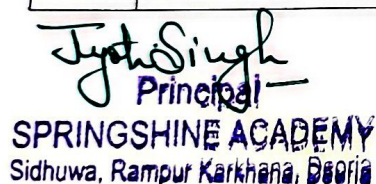 Jyoti Singh
Principal
SPRINGSHINE ACADEMY
Sidhuwa, Rampur Karkhana, Deoria